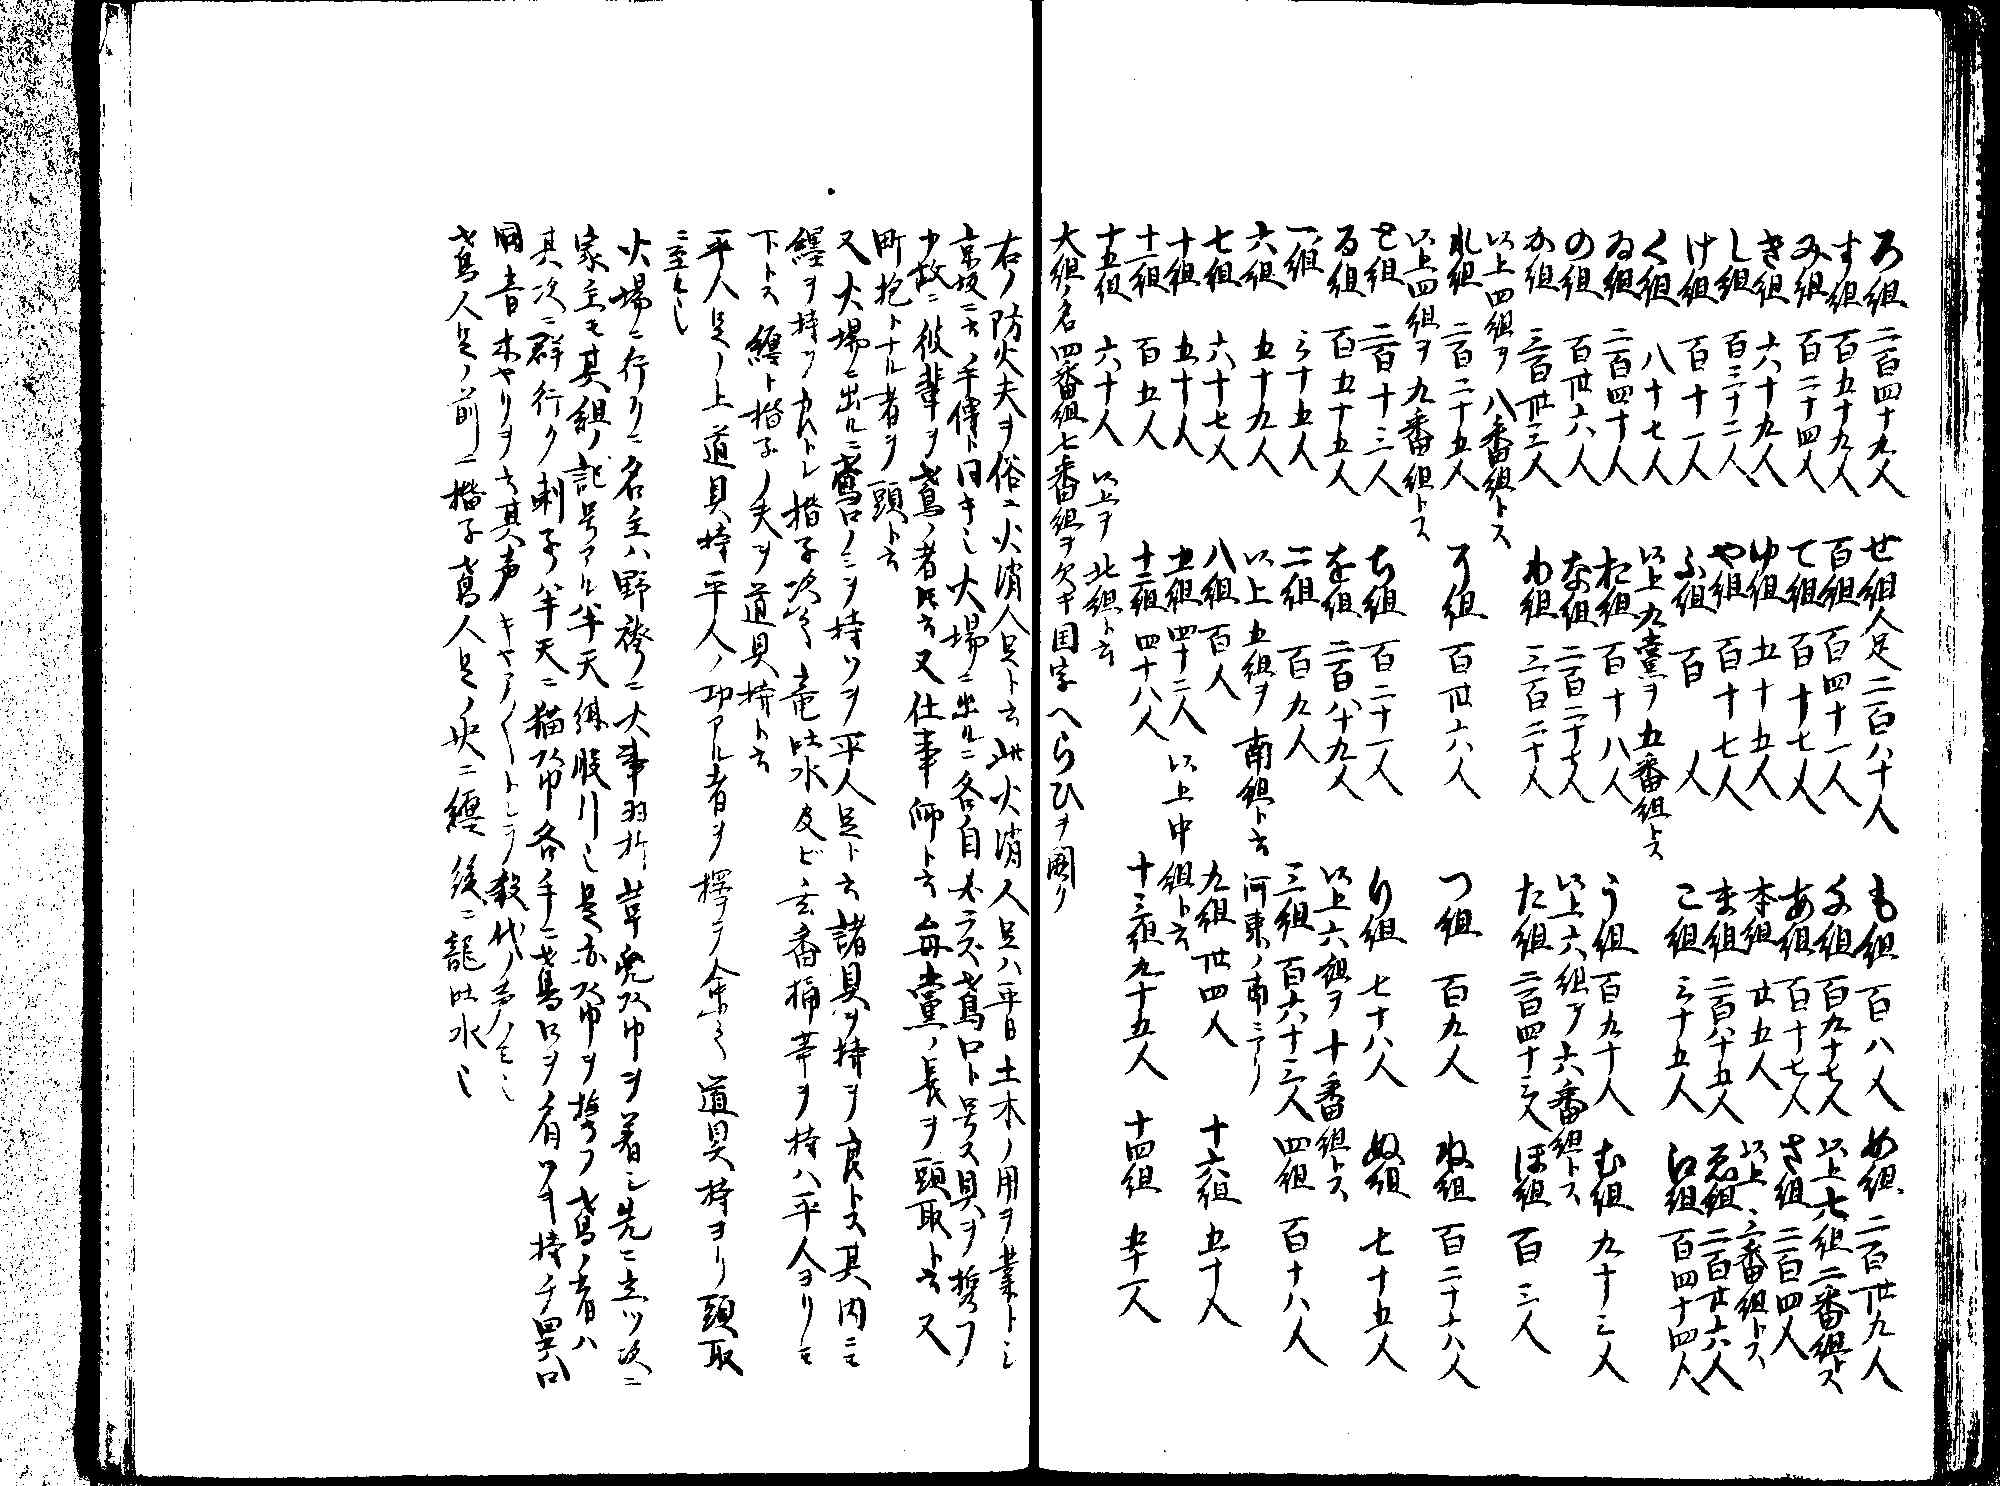 ろ組 二百四十九人 せ組人足二百八十人 も組 百八人 め組 二百卅九人
す組 百五十九人 百組 百四十一人 千組 百九十七人 以上七組二番組トス
み組 百二十四人 て組 百十七人 あ組 百十七人 さ組 二百四人
き組 六十九人 ゆ組 五十五人 本組 廿五人 以上三番組トス
し組 百三十二人 や組 百十七人 ま組 二百八十五人 ゑ組 二百廿六人
け組 百十一人 ふ組 百人 こ組 三十五人 江組 百四十四人
く組 八十七人 以上九党ヲ五番組トス
ゐ組 二百四十人 お組 百十八人 う組 百九十人 む組 九十三人
の組 百卅六人 な組 二百二十七人 以上六組ヲ六番組トス
か組 三百卅三人 わ組 三百二十人 た組 二百四十三人 ほ組 百三人
以上四組ヲ八番組トス
れ組 二百二十五人 そ組 百卅六人 つ組 百九人 ね組 百二十八人
以上四組ヲ九番組トス
と組 二百十三人 ち組 百二十一人 り組 七十八人 ぬ組 七十五人
る組 百五十五人 を組 二百八十九人 以上六組ヲ十番組トス
一組 三十五人 二組 百九人 三組 百六十三人 四組 百十八人
六組 五十九人 以上五組ヲ南組ト云 河東ノ南ニアリ
七組 六十七人 八組 百人 九組 卅四人 十六組 五十人
十組 五十人 五組 四十二人 以上中組ト云
十一組 百五人 十二組 四十八人 十三組 九十五人 十四組 五十一人
十五組 六十人 以上ヲ北組ト云
大組ノ名四番組七番組ヲ欠キ国字へらひヲ闕リ
右ノ防火夫ヲ俗ニ火消人足ト云此火消人足ハ平日土木ノ用ヲ業トシ
京坂ニ云手傳ト同キ也火場ニ出ルニ各自必ラズ鳶口ト号ス具ヲ携フ
ヿ故ニ彼輩ヲ鳶ノ者トモ云又仕事師ト云毎党ノ長ヲ頭取ト云又
町抱トナル者ヲ頭ト云
又火場ニ出ルニ鳶口ノミヲ持ツヲ平人足ト云諸具ヲ持ヲ良トス其内ニモ
纏ヲ持ヲ良トシ楷子次之竜吐水及ビ玄番桶等ヲ持ハ平人ヨリモ
下トス纏ト楷子ノ夫ヲ道具持ト云
平人足ノ上道具持平人ノ功アル者ヲ擇テ命之道具持ヨリ頭取
ニ至ル也
火場ニ行クニ名主ハ野袴ニ火事羽折革兜頭巾ヲ着シ先ニ立ツ次ニ
家主モ其組ノ記号アル半天絹股引也是亦頭巾ヲ携フ鳶ノ者ハ
其次ニ群行ク刺子半天ニ猫頭巾各手ニ鳶口ヲノ有ツヲ持チ異口
同音木ヤリヲ云其声キヤアイ〱トシテ殺伐ノ声ノミ也
鳶人足ノ前ニ楷子鳶人足ノ央ニ纏後ニ龍吐水也